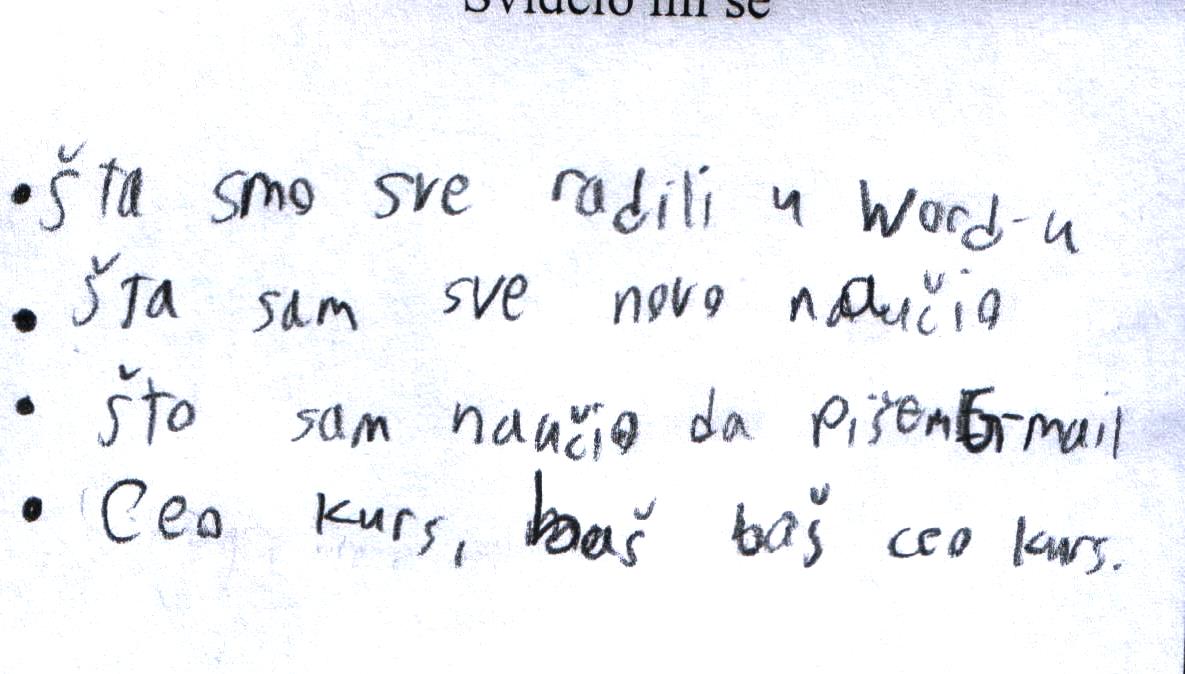 Svidelo mi se
• Šta smo sve radili u Word-u
• Šta sam sve novo naučio
• Što sam naučio da pišem E-mail
• Ceo kurs, baaš baš ceo kurs.